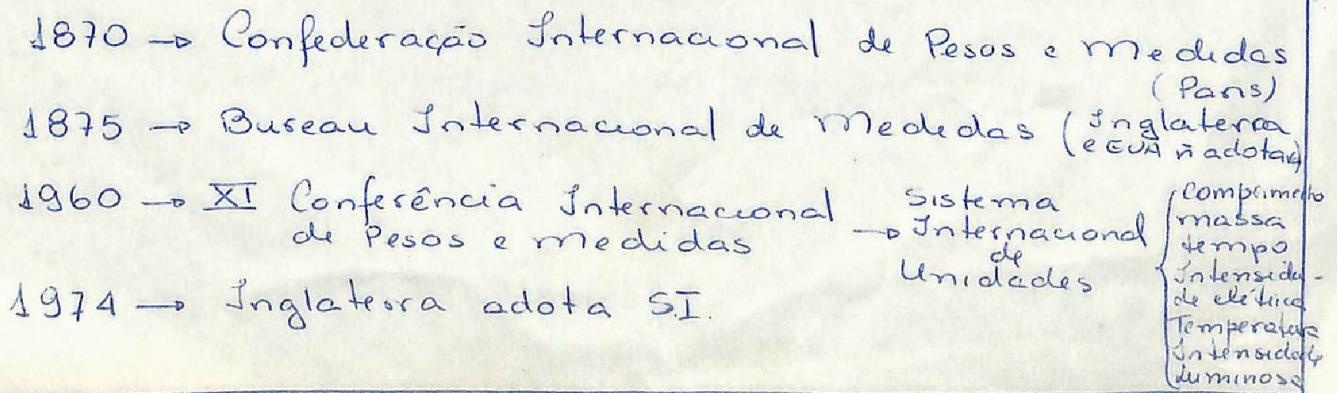 1870 → Confederação Internacional de Pesos e medidas
(Paris)
1875 → Bureau Internacional de medidas (Inglaterra
e EUA ñ adotam)
1960 → XI Conferência Internacional
de Pesos e medidas
→ Sistema
Internacional
de
Unidades
{ comprimento
massa
tempo
Intensida-
de elétrica
Temperatura
Intensidade
luminosa
1974 → Inglaterra adota S.I.